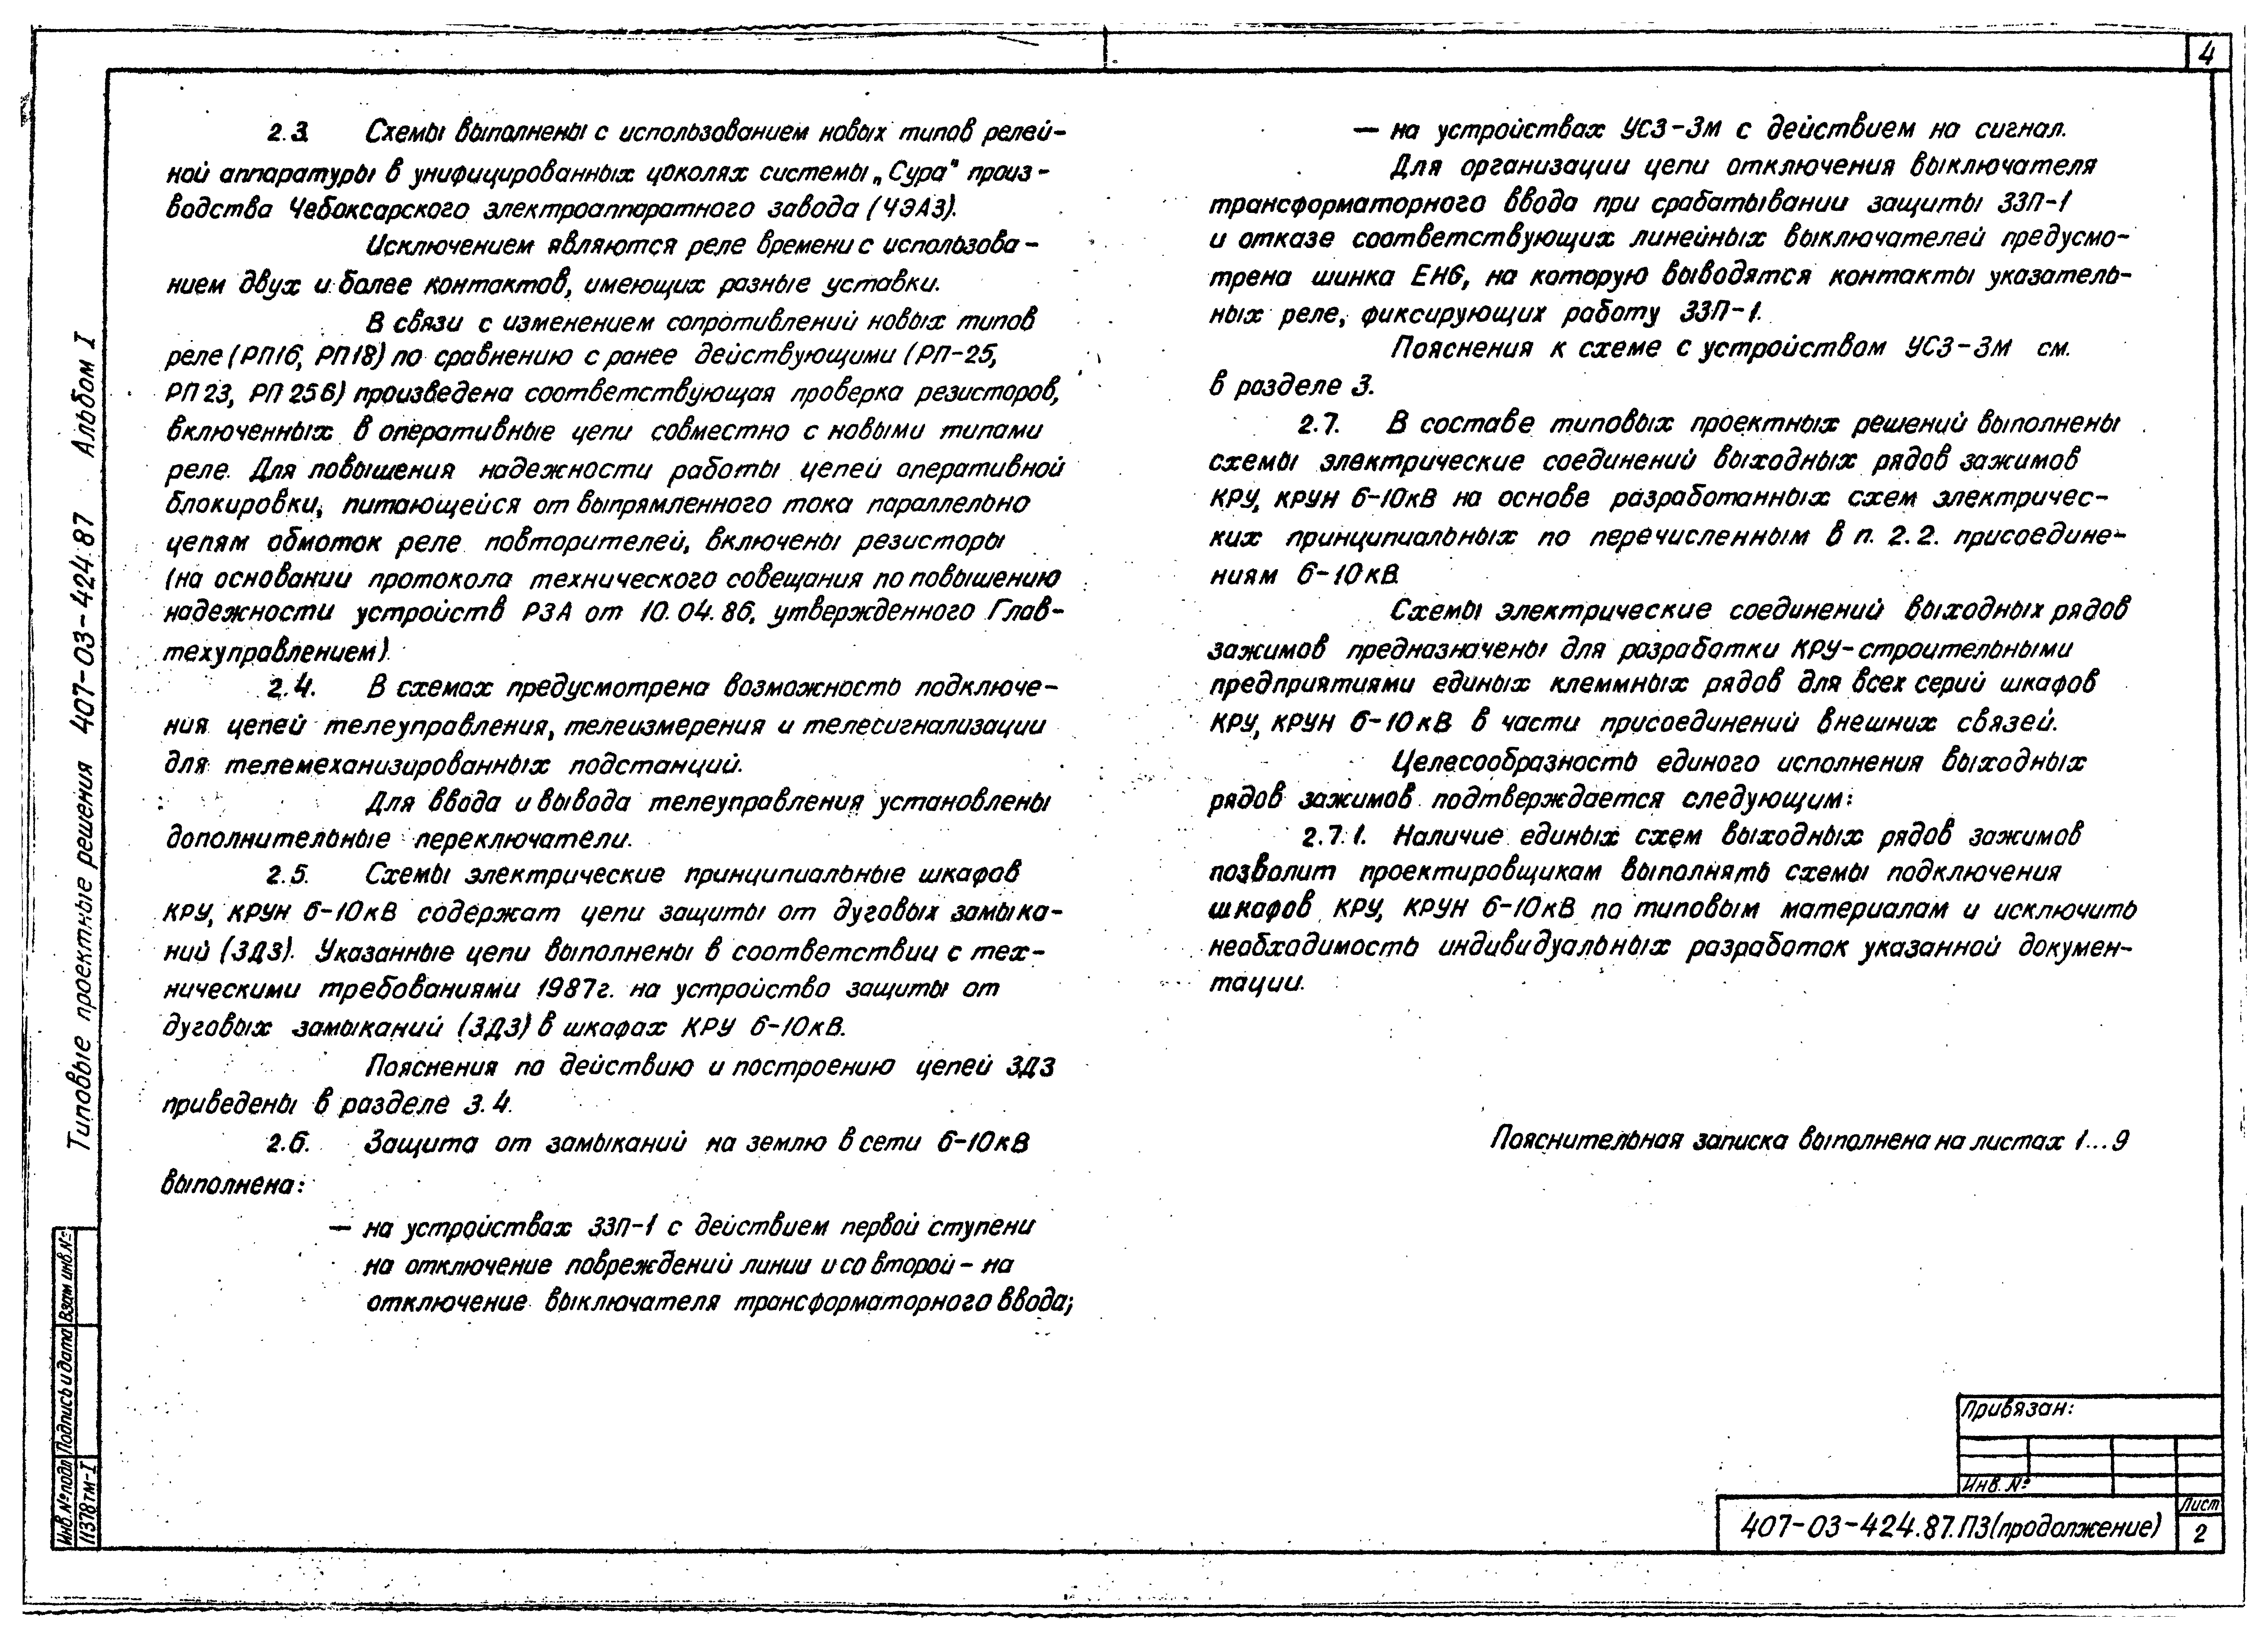 4
2.3. Схемы выполнены с использованием новых типов релей-
ной аппаратуры в унифицированных цоколях системы „Сура" произ-
водства Чебоксарского электроаппаратного завода (ЧЭАЗ).
Исключением являются реле времени с использова-
нием двух и более контактов, имеющих разные уставки.
В связи с изменением сопротивлений новых типов
реле (РП16, РП18) по сравнению с ранее действующими (РП-25,
РП23, РП256) произведена соответствующая проверка резисторов,
включенных в оперативные цепи совместно с новыми типами
реле. Для повышения надежности работы цепей оперативной
блокировки, питающейся от выпрямленного тока параллельно
цепям обмоток реле повторителей, включены резисторы
(на основании протокола технического совещания по повышению
надежности устройств РЗА от 10.04.86, утвержденного Глав-
техуправлением).
2.4. В схемах предусмотрена возможность подключе-
ния цепей телеуправления, телеизмерения и телесигнализации
для телемеханизированных подстанций.
Для ввода и вывода телеуправления установлены
дополнительные переключатели.
2.5. Схемы электрические принципиальные шкафов
КРУ, КРУН 6-10кВ содержат цепи защиты от дуговых замыка-
ний (ЗДЗ). Указанные цепи выполнены в соответствии с тех-
ническими требованиями 1987г. на устройство защиты от
дуговых замыканий (ЗДЗ) в шкафах КРУ 6-10кВ.
Пояснения по действию и построению цепей ЗДЗ
приведены в разделе 3.4.
2.6. Защита от замыканий на землю в сети 6-10кВ
выполнена:
— на устройствах ЗЗП-1 с действием первой ступени
на отключение повреждений линии и со второй - на
отключение выключателя трансформаторного ввода;
— на устройствах УСЗ-3М с действием на сигнал.
Для организации цепи отключения выключателя
трансформаторного ввода при срабатывании защиты ЗЗП-1
и отказе соответствующих линейных выключателей предусмо-
трена шинка ЕН6, на которую выводятся контакты указатель-
ных реле, фиксирующих работу ЗЗП-1.
Пояснения к схеме с устройством УСЗ-3М см.
в разделе 3.
2.7. В составе типовых проектных решений выполнены
схемы электрические соединений выходных рядов зажимов
КРУ, КРУН 6-10кВ на основе разработанных схем электричес-
ких принципиальных по перечисленным в п. 2.2. присоедине-
ниям 6-10кВ.
Схемы электрические соединений выходных рядов
зажимов предназначены для разработки КРУ-строительными
предприятиями единых клеммных рядов для всех серий шкафов
КРУ, КРУН 6-10кВ в части присоединений внешних связей.
Целесообразность единого исполнения выходных
рядов зажимов подтверждается следующим:
2.7.1. Наличие единых схем выходных рядов зажимов
позволит проектировщикам выполнять схемы подключения
шкафов КРУ, КРУН 6-10кВ по типовым материалам и исключить
необходимость индивидуальных разработок указанной докумен-
тации.
Пояснительная записка выполнена на листах 1...9
Типовые проектные решения 407-03-424.87 Альбом I
Взам инв.№
Подпись и дата
Инв.№подл
11378тм-I
Привязан:
Инв. №
407-03-424.87.ПЗ(продолжение)
Лист
2